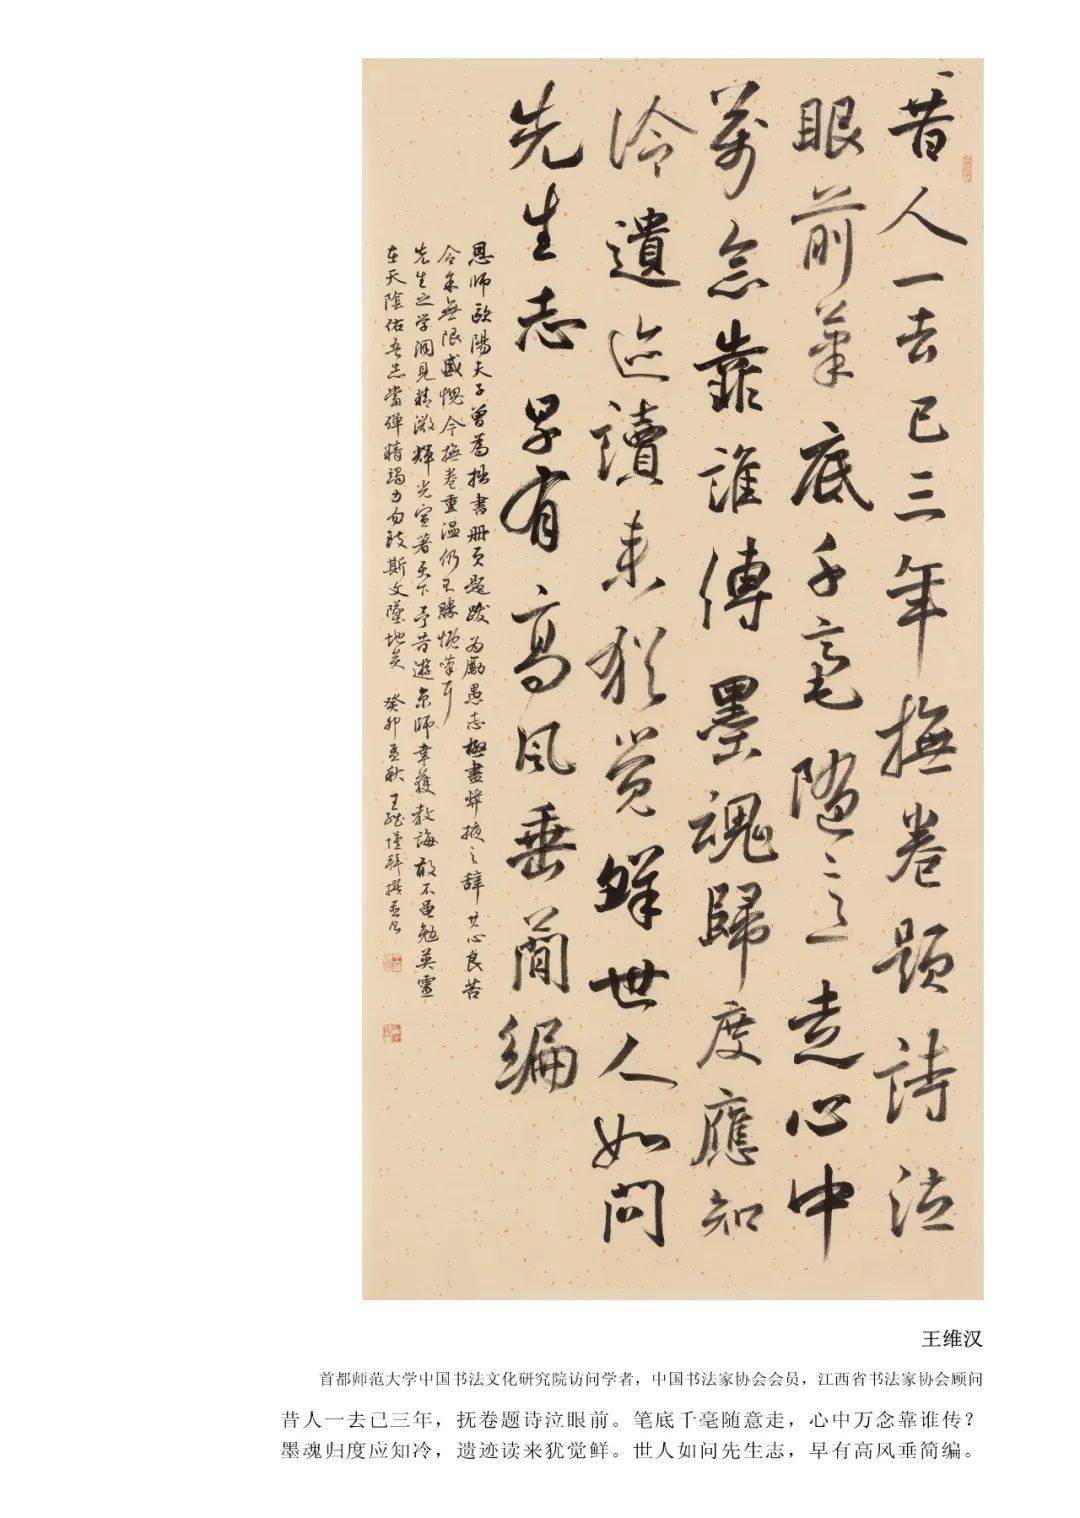 昔人一去已三年撫卷題詩泣
眼前筆底千毫隨意走心中
萬念靠誰傳墨魂歸度應知
冷遺迹讀來猶覺鮮世人如問
先生志早有高風垂簡編
恩師歐陽夫子曾為拙書冊頁題跋為勵愚志極盡獎掖之辭其心良苦
令余無限感愧今撫卷重溫仍不勝慨嘆耳
先生之學洞見精微輝光宣著天下予昔遊京師幸獲教誨敢不黽勉英靈
在天陰佑吾志當殫精竭力勿致斯文墜地矣 癸卯孟秋 王維漢拜撰並書
王维汉
首都师范大学中国书法文化研究院访问学者，中国书法家协会会员，江西省书法家协会顾问
昔人一去已三年，抚卷题诗泣眼前。笔底千毫随意走，心中万念靠谁传？
墨魂归度应知冷，遗迹读来犹觉鲜。世人如问先生志，早有高风垂简编。